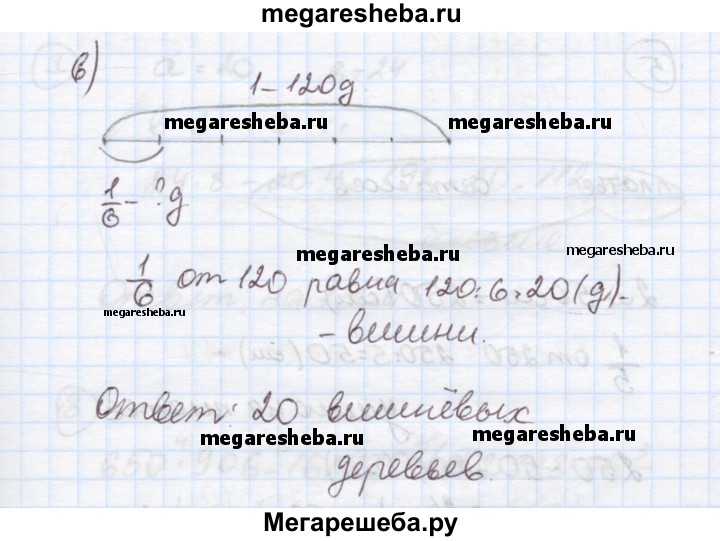 megaresheba.ru
в)
1 - 120 д
megaresheba.ru megaresheba.ru
1/6 - ? д
megaresheba.ru
megaresheba.ru
1/6 от 120 равна 120:6=20(д)-
megaresheba.ru
- вишни.
Ответ: 20 вишнёвых
megaresheba.ru megaresheba.ru
деревьев.
Мегарешеба.ру